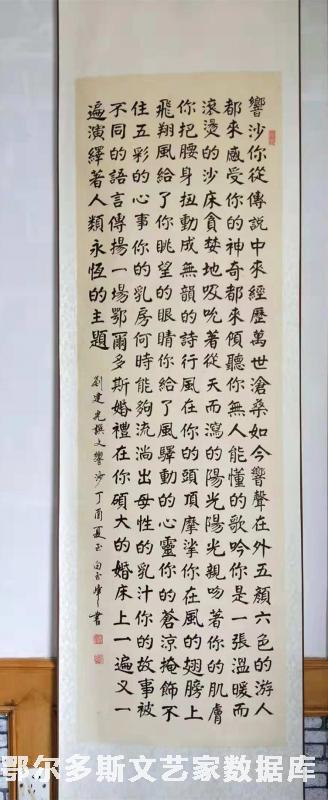 響沙你從傳說中來經歷萬世滄桑如今響聲在外五顏六色的游人
都來感受你的神奇都來傾聽你無人能懂的歌吟你是一張溫暖而
滾燙的沙床貪婪地吸吮著從天而瀉的陽光陽光親吻著你的肌膚
你把腰身扭動成無韻的詩行風在你的頭頂摩挲你在風的翅膀上
飛翔風給了你眺望的眼睛你給了風驛動的心靈你的蒼涼掩飾不
住五彩的心事你的乳房何時能夠流淌出母性的乳汁你的故事被
不同的語言傳揚一場鄂爾多斯婚禮在你碩大的婚床上一遍又一
遍演繹著人類永恆的主題
劉建光撰文響沙丁酉夏玉白玉峰書
鄂尔多斯文艺家数据库